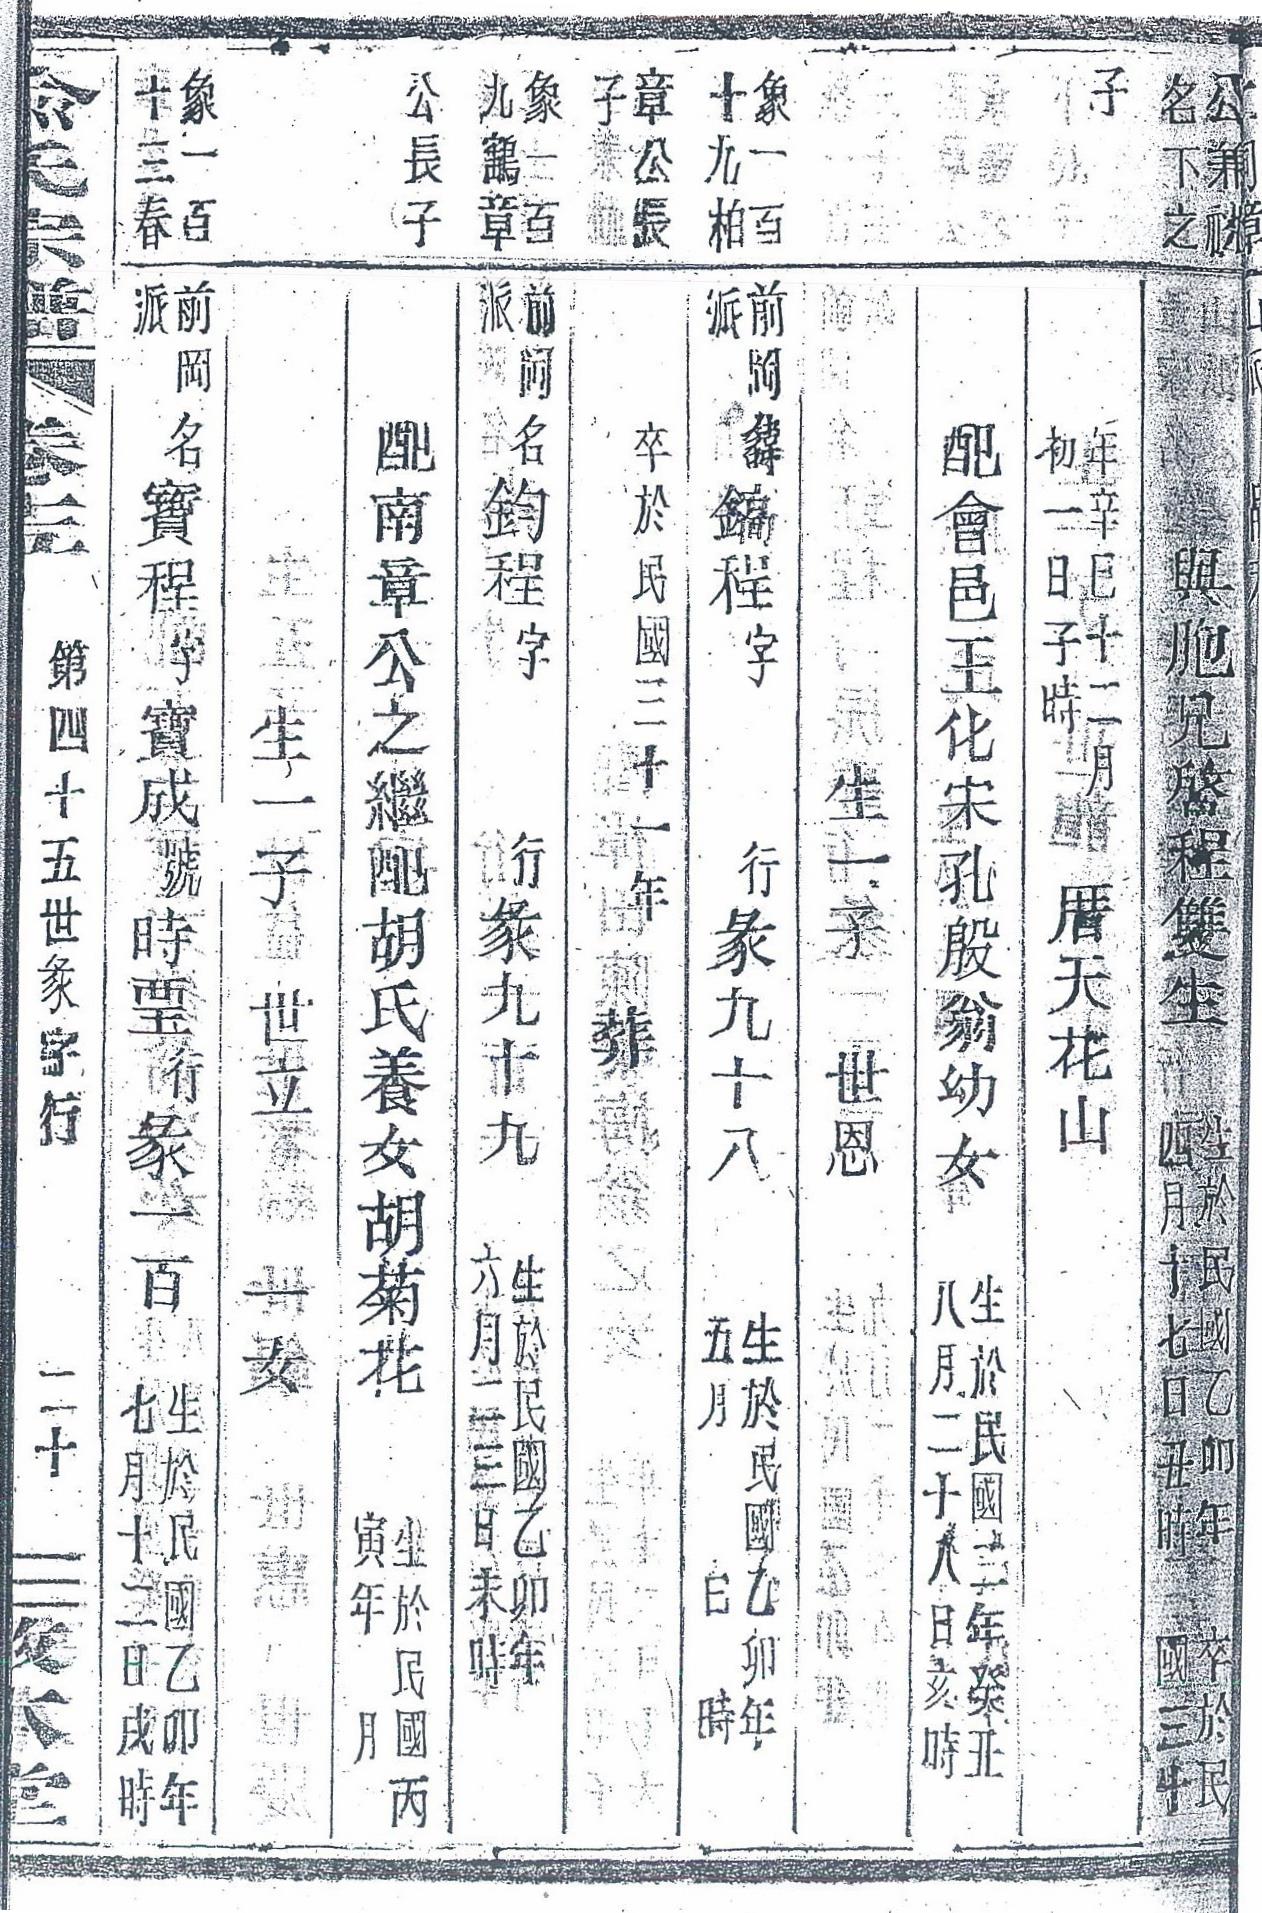 公兼祧
名下之
與胞兄啓程雙生
生於民國乙卯年
四月十七日丑時
卒於民
國三十
子
年辛巳十二月
初一日子時
厝天花山
配會邑王化宋孔殷翁幼女
生於民國二年癸丑
八月二十八日亥時
生一子
世恩
象一百
十九柏
前岡
派
諱鎬程字
行彖九十八
生於民國乙卯年
五月 日 時
章公長
子
卒於民國三十一年
葬
象一百
九鶴章
前岡
派
名鈞程字
行彖九十九
生於民國乙卯年
六月二三日未時
公長子
配南章公之繼配胡氏養女胡菊花
生於民國丙
寅年 月
生一子
世立
一女
象一百
十三春
前岡
派
名寶程字寶成號時堊行彖一百
生於民國乙卯年
七月十二日戌時
俞氏宗譜
卷三
第四十五世彖字行
二十
敦本堂